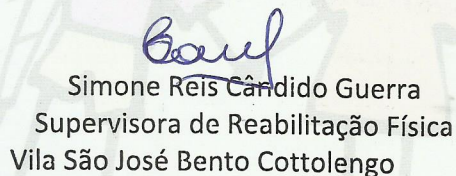 Simone Reis Cândido Guerra
Supervisora de Reabilitação Física
Vila São José Bento Cottolengo